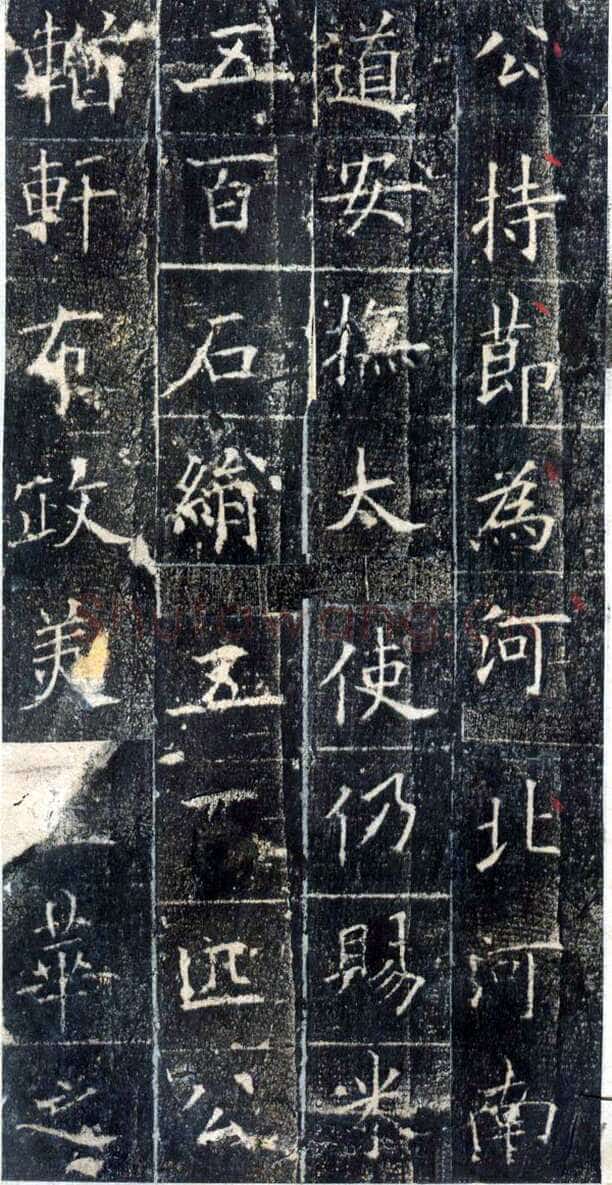 公持節為河北河南
道安撫太使仍賜米
五百石絹五匹公
輶軒布政美華之